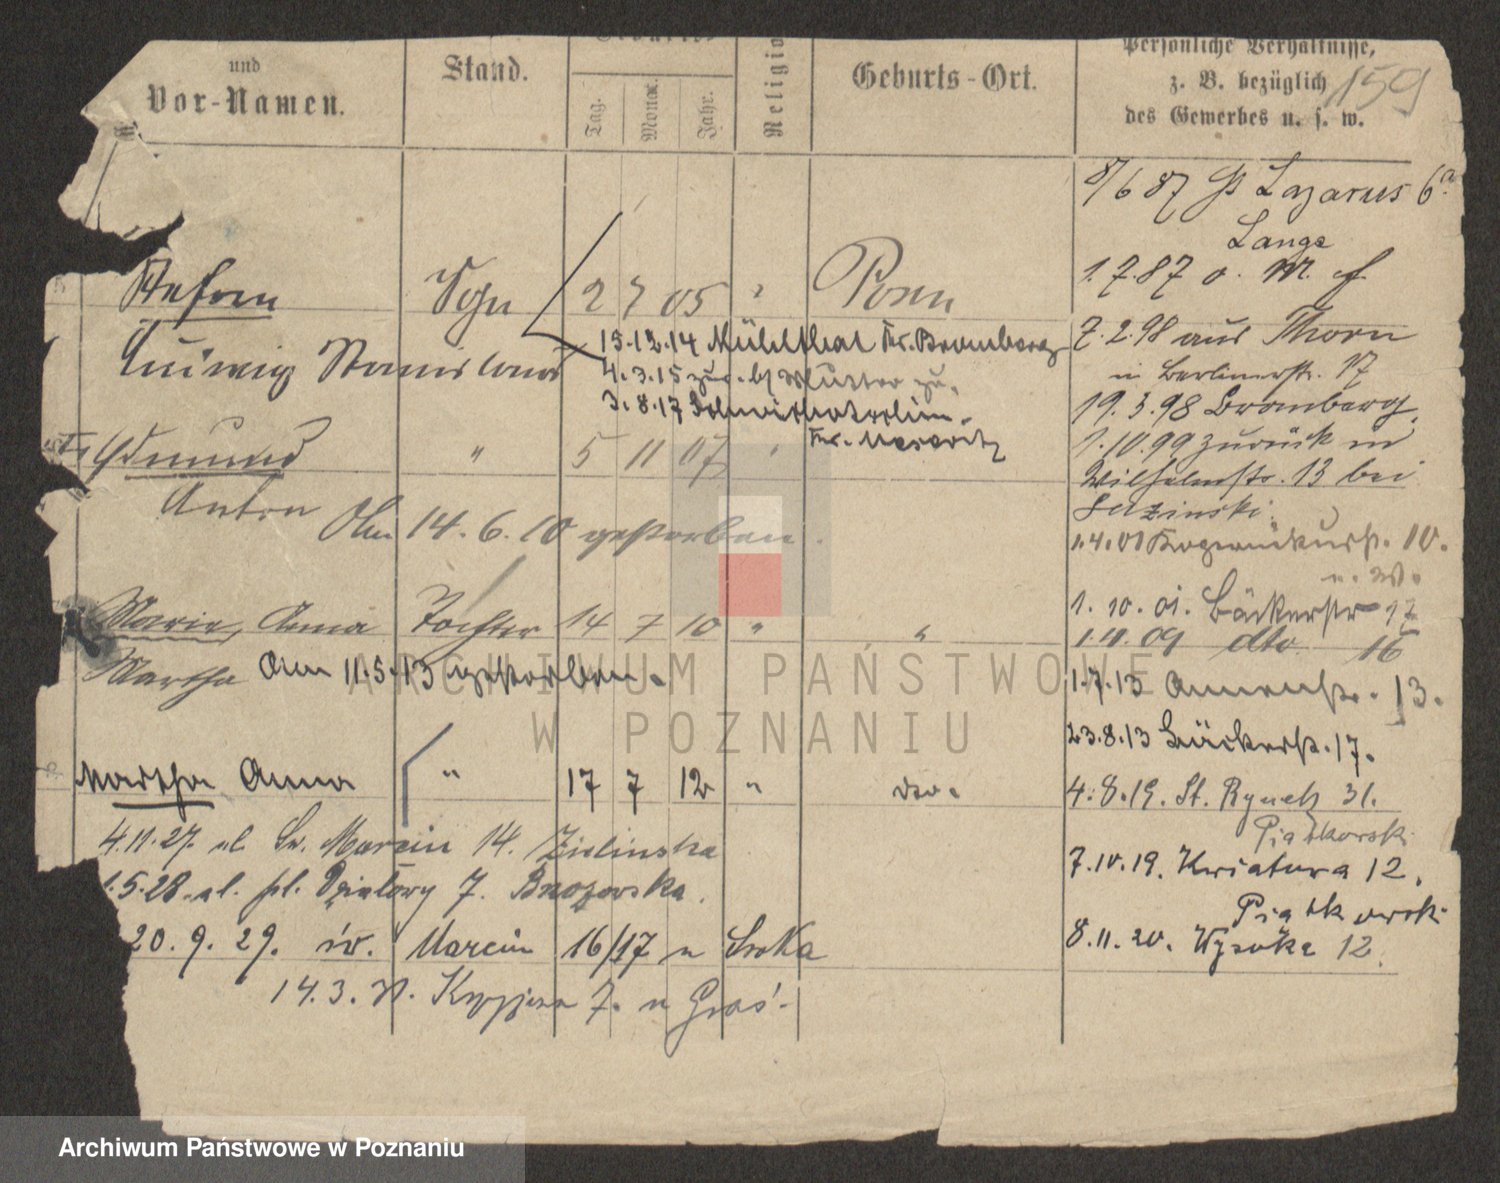 und
Vor-Namen.
Stand.
Tag.
Monat.
Jahr.
Religio
Geburts-Ort.
Persönliche Verhältnisse,
z. B. bezüglich
des Gewerbes u. s. w.
159
8/6 87 St Lazarus 6a
Lange
1.7.87 o. M. f
Stefan 2 7 05 " Posen
Ludwig Stanislaus
13.12.14 Mühlthal Kr. Bromberg
4.3.15 zur. bei Mutter zu.
3.8.17
Kr. Meseritz
7.2.98 aus Thorn
in Berlinerstr. 17
19.3.98 Bromberg.
1.10.99 zurück in
Wilhelmstr. 13 bei
Edmund " 5 11 07 "
Anton
Am 14.6.10 gestorben.
1.4.01 10.
n. W.
1. 10. 01. Bäckerstr 17
1.11.09 dto 16
Maria, Anna Tochter 14 7 10 " "
Martha Am 11.5.13 gestorben.
1.7.13 Annenstr. 13.
23.8.13 Bäckerstr. 17.
Martha Anna " 17 7 12 " do.
4.8.19. St. Rynek 31.
Piątkowski
7.10.19. Kwiatowa 12.
Piątkowski
8.11.20. Wysoka 12.
4.11.27. ul. Św. Marcin 14. Zielinska
1.5.28. ul. pl. Działowy 7. Brzozowska.
20. 9. 29. św. Marcin 16/17 u Sroka
14.3. 7. u Graś.
ARCHIWUM PAŃSTWOWE
W POZNANIU
Archiwum Państwowe w Poznaniu